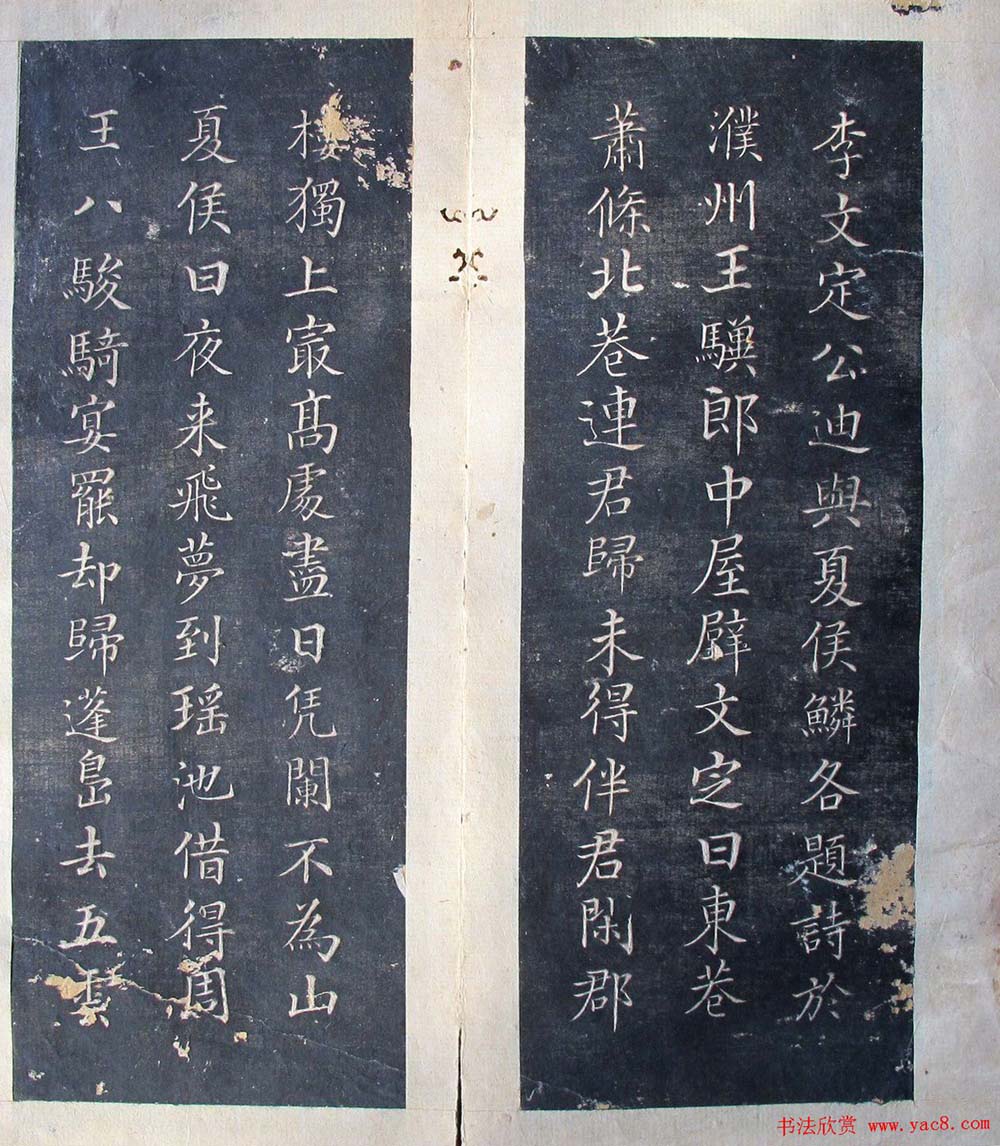 李文定公迪與夏侯鱗各題詩於
濮州王驥郎中屋壁文定曰東巷
蕭條北巷連君歸未得伴君閑郡
樓獨上㝡髙處盡日凭闌不為山
夏侯曰夜来飛夢到瑶池借得周
王八駿騎宴罷却歸蓬島去五雲
书法欣赏 www.yac8.com